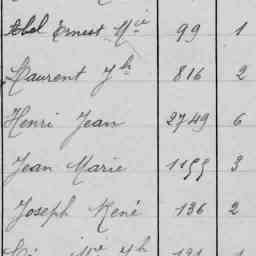 Abel Ernest Mie 99 1
Laurent Jh 816 2
Henri Jean 2749 6
Jean Marie 1199 3
Joseph René 136 2